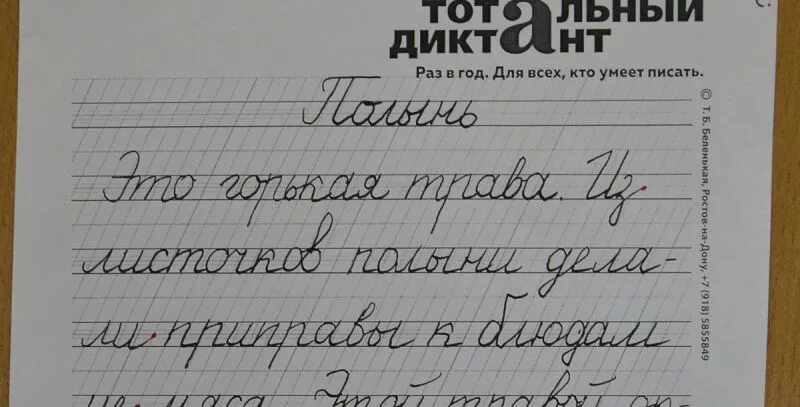 тотальный
диктант
Раз в год. Для всех, кто умеет писать.
© Т. Б. Беленькая, Ростов-на-Дону, +7 (918) 5855849
Полынь
Это горькая трава. Из
листочков полыни дела-
ли приправы к блюдам
Этой травой